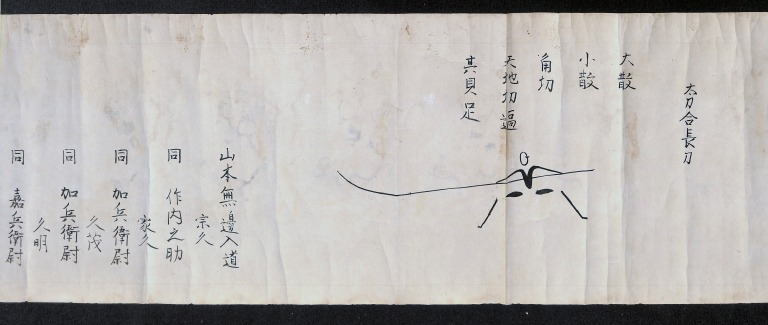 太刀合長刀
大散
小散
角切
天地切逼
其貝足
山本無邊入道
宗久
同 作内之助
家久
同 加兵衛尉
久茂
同 加兵衛尉
久明
同 嘉兵衛尉